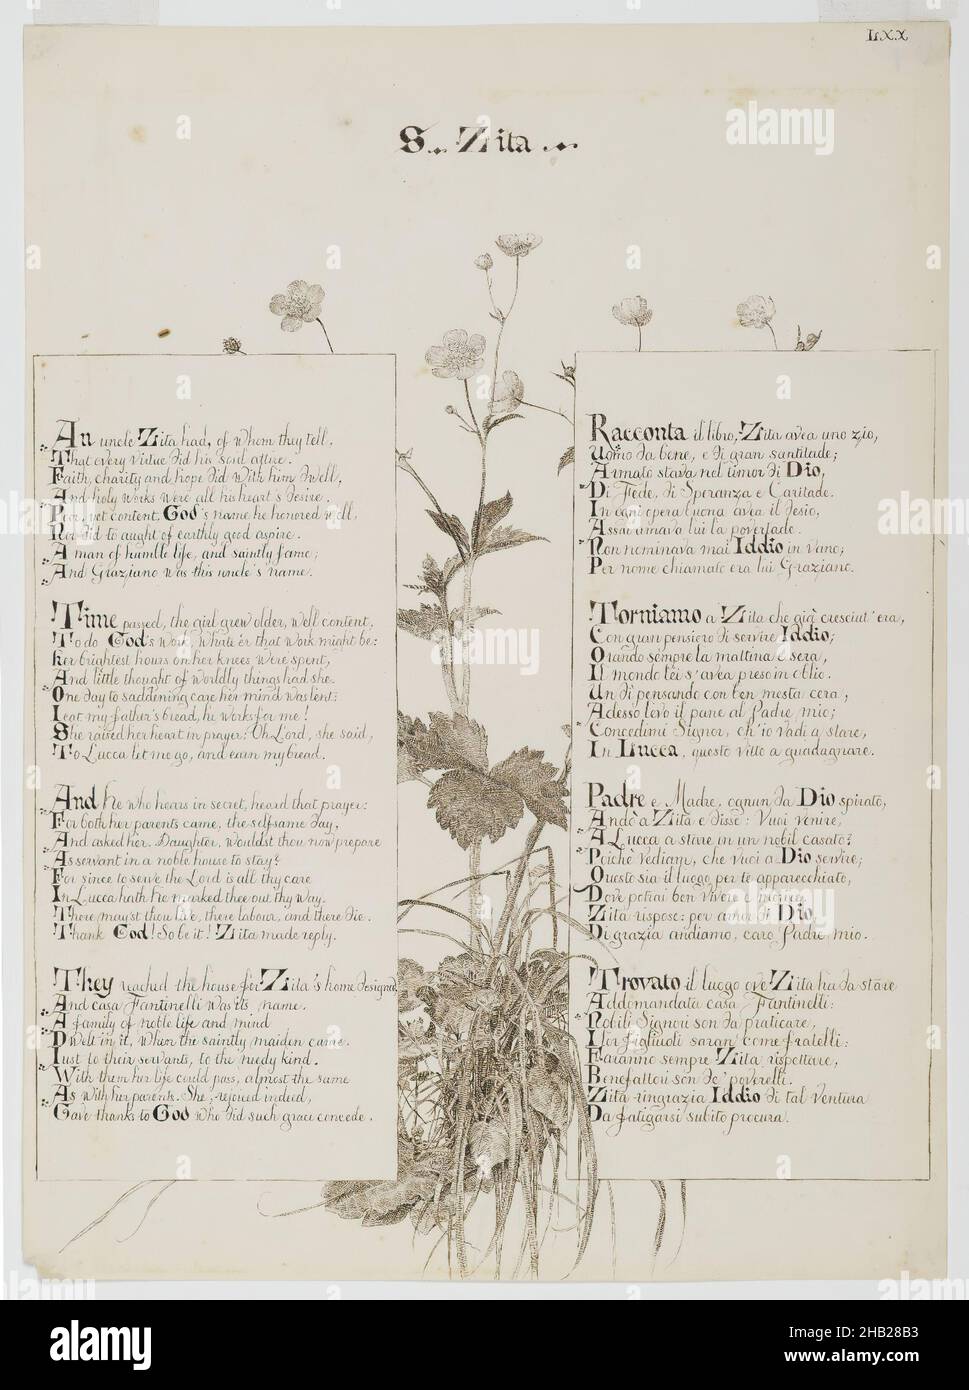 LXX
S. Zita.
An uncle Zita had, of whom they tell,
That every virtue did his soul attire.
Faith, charity and hope did with him dwell,
And holy works were all his heart's desire.
Poor, yet content, God's name he honored well,
Nor did to aught of earthly good aspire.
A man of humble life, and saintly fame;
And Graziano was this uncle's name.
Time passed, the girl grew older, well content,
To do God's work, whate'er that work might be:
her brightest hours on her knees were spent,
And little thought of worldly things had she.
One day to saddening care her mind was lent:
I eat my father's bread, he works for me!
She raised her heart in prayer: Oh Lord, she said,
To Lucca let me go, and earn my bread.
And he who hears in secret, heard that prayer:
For both her parents came, the selfsame day,
And asked her. Daughter, wouldst thou now prepare
As servant in a noble house to stay?
For since to serve the Lord is all thy care
In Lucca hath he marked thee out thy way.
There may'st thou live, there labour, and there die.
Thank God! So be it! Zita made reply.
They reached the house for Zita's home designed
And casa Fantinelli was its name.
A family of noble life and mind
Dwelt in it, when the saintly maiden came.
Just to their servants, to the needy kind.
With them her life could pass, almost the same
As with her parents. She, rejoiced indeed,
Gave thanks to God who did such grace concede.
Racconta il libro, Zita avea uno zio,
Uomo da bene, e di gran santitade;
Armato stava nel timor di Dio,
Di Fede, di Speranza e Caritade.
In ogni opera buona avea il desio,
Assai amava lui la povertade.
Non nominava mai Iddio in vano;
Per nome chiamato era lui Graziano.
Torniamo a Zita che già cresciut' era,
Con gran pensiero di servire Iddio;
Orando sempre la mattina e sera,
Il mondo lei s'avea preso in oblio.
Un dì pensando con ben mesta cera,
Adesso levo il pane al Padre mio;
Concedimi Signor, ch'io vadi a stare,
In Lucca, questo vitto a guadagnare.
Padre e Madre, ognun da Dio spirato,
Andò a Zita e disse: Vuoi venire,
A Lucca a stare in un nobil casato?
Poichè vediam, che vuoi a Dio servire;
Questo sia il luogo per te apparecchiato,
Dove potrai ben vivere e morire.
Zita rispose: per amor di Dio,
Di grazia andiamo, caro Padre mio.
Trovato il luogo ove Zita ha da stare
Addomandata casa Fantinelli:
Nobili Signori son da praticare,
I lor figliuoli saran come fratelli:
Faranno sempre Zita rispettare,
Benefattori son de' poverelli.
Zita ringrazia Iddio di tal ventura
Da fatigarsi subito procura.
alamy
alamy
Image ID: 2HB28B3
www.alamy.com